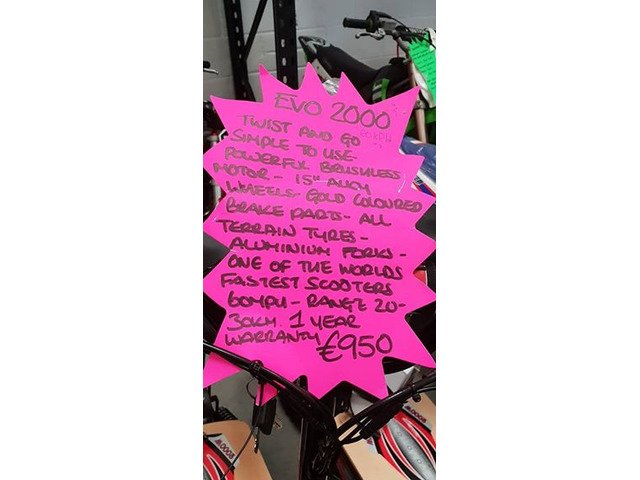 EVO 2000
60KPH
TWIST AND GO
SIMPLE TO USE-
POWERFUL BRUSHLESS
MOTOR - 15" ALLOY
WHEELS- GOLD COLOURED
BRAKE PARTS- ALL
TERRAIN TYRES -
ALUMINIUM FORKS -
ONE OF THE WORLDS
FASTEST SCOOTERS
60MPH - RANGE 20-
30KM. 1 YEAR
WARRANTY €950